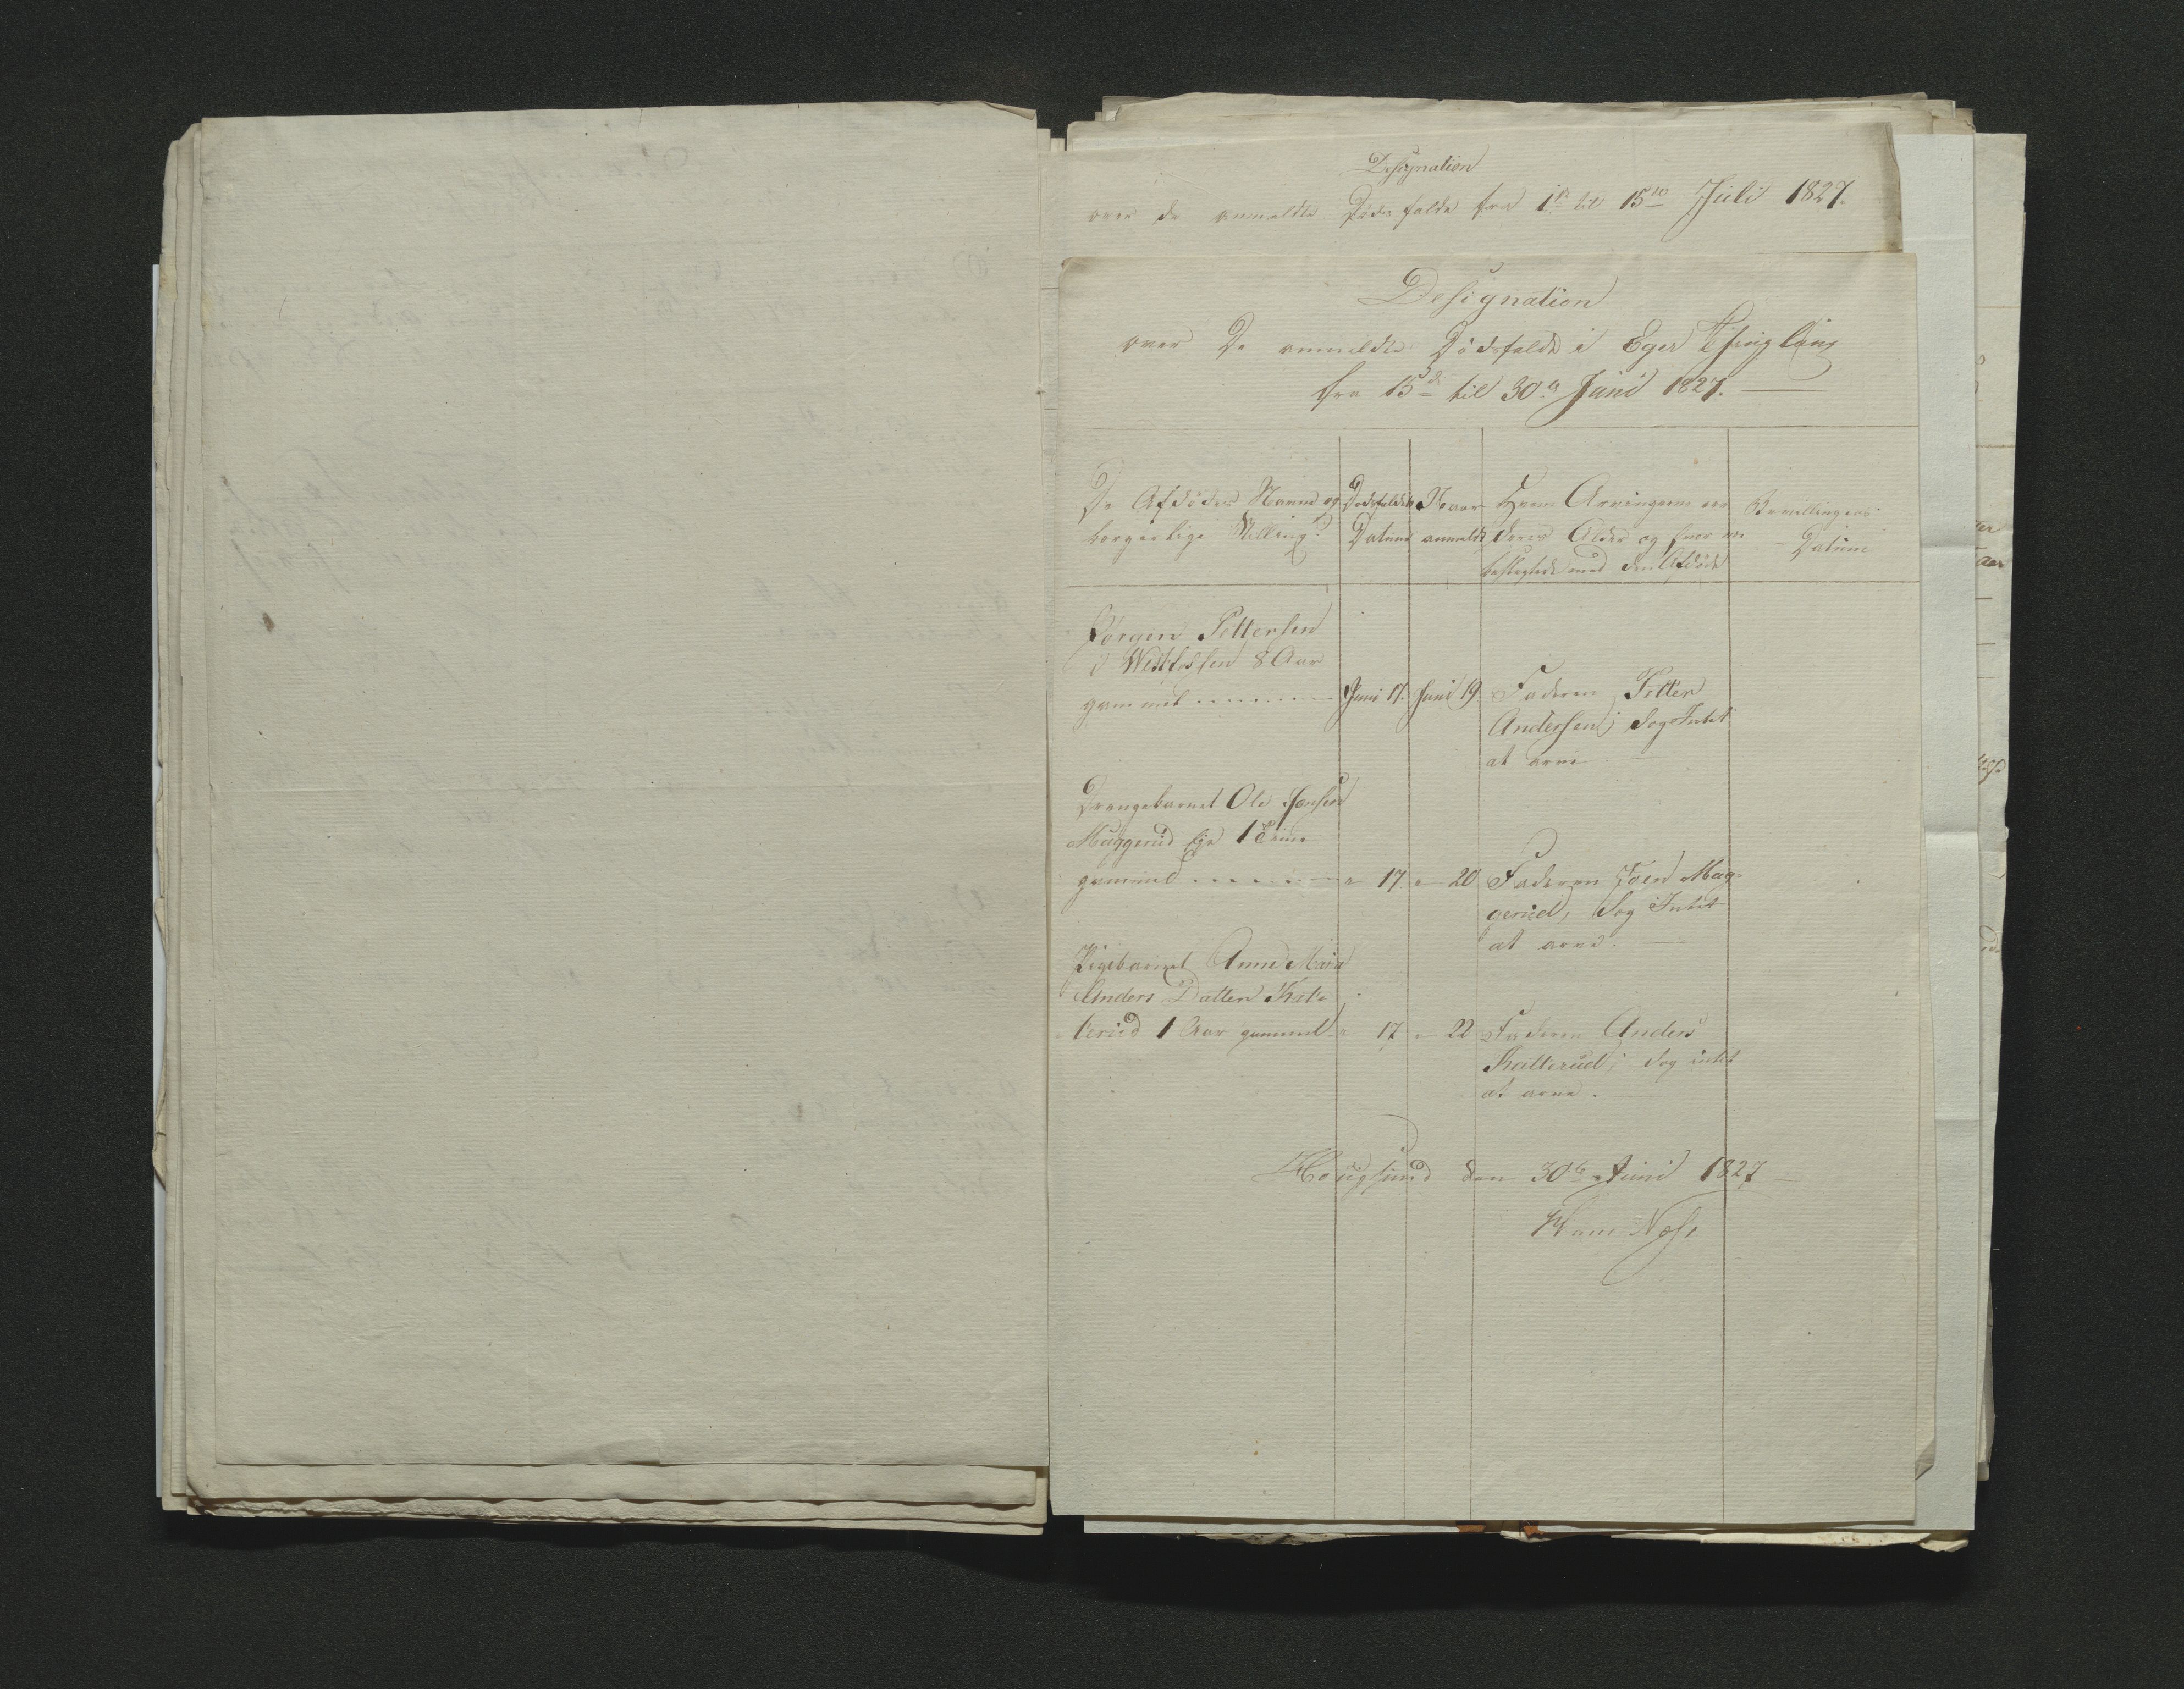 Designation
over de anmeldte Dødsfalde fra 1te til 15de Juli 1827.
Designation
over De anmeldte Dødsfalde i Eger Thinglaug
fra 15de til 30te Juni 1827.
De Afdødes Navne og
borgerlige Stilling.
Dødsfaldets
Datum
Naar
anmeldt
Hvem Arvingerne ere
deres Alder og hvor nær
beslegtede med den Afdøde
Bevillingens
Datum
Jørgen Pettersen
i Westfossen 8 Aar
gammel Juni 17. Juni 19 Faderen Petter
Andersen; dog Intet
at arve
Drengebarnet Ole Jonsen
Maggerud Eje 1
gammel " 17. " 20 Faderen Joen Mag-
gerud, dog Intet
at arve.
Pigebarnet Anne Maria
Anders Datter Skat-
terud 1 Aar gammel " 17 " 22 Faderen Anders
Skatterud; dog intet
at arve.
Hougsund den 30te Juni 1827